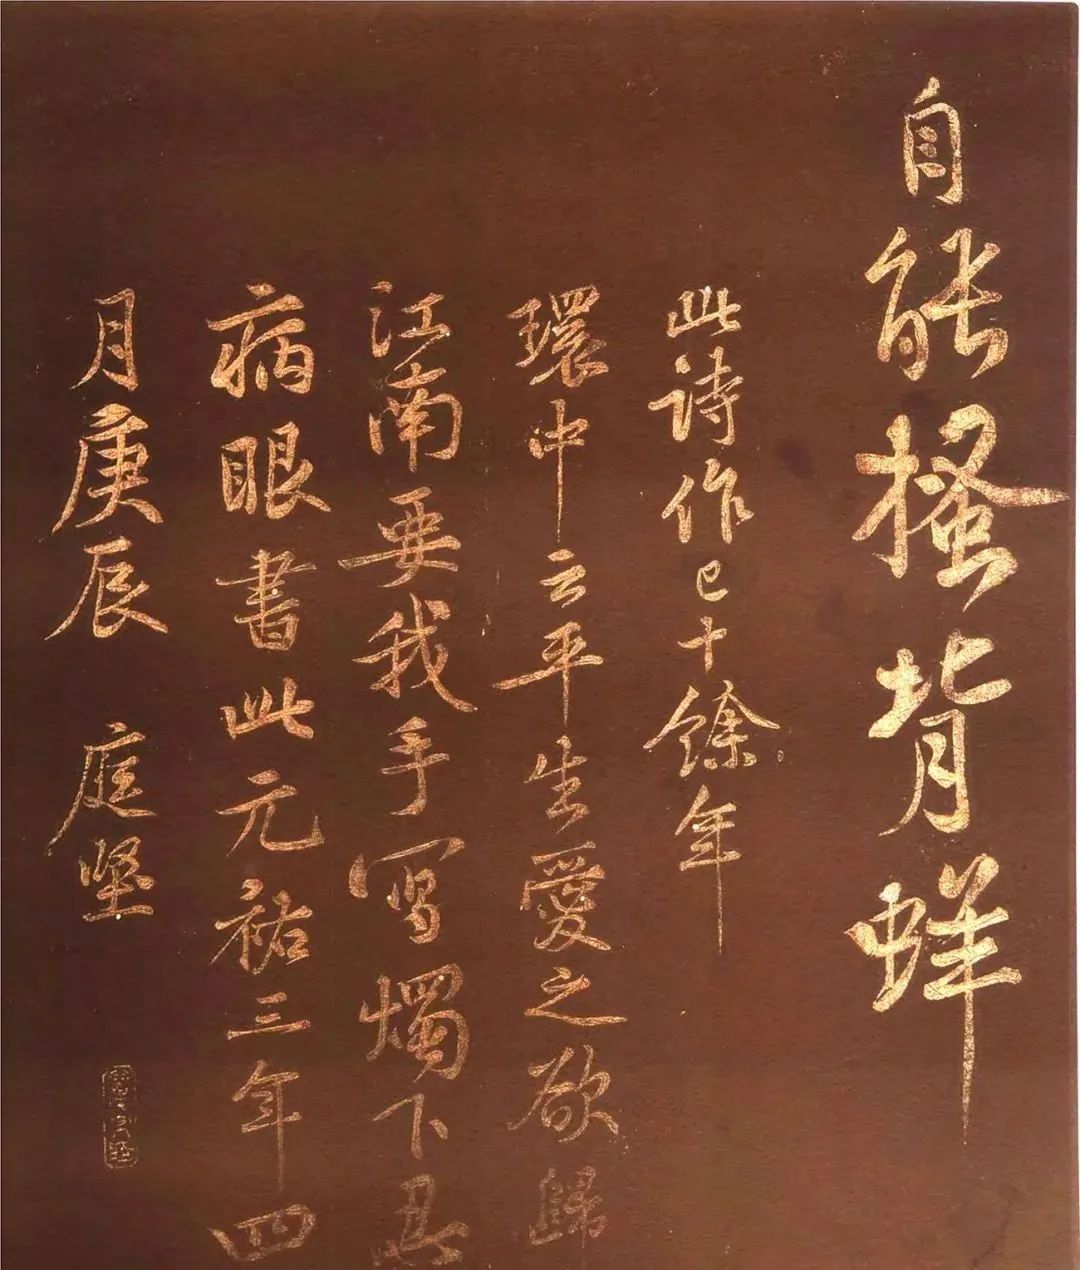 自能搔背蛘
此詩作已十餘年
環中云平生愛之欲歸
江南要我手寫燭下忍
病眼書此元祐三年四
月庚辰 庭堅